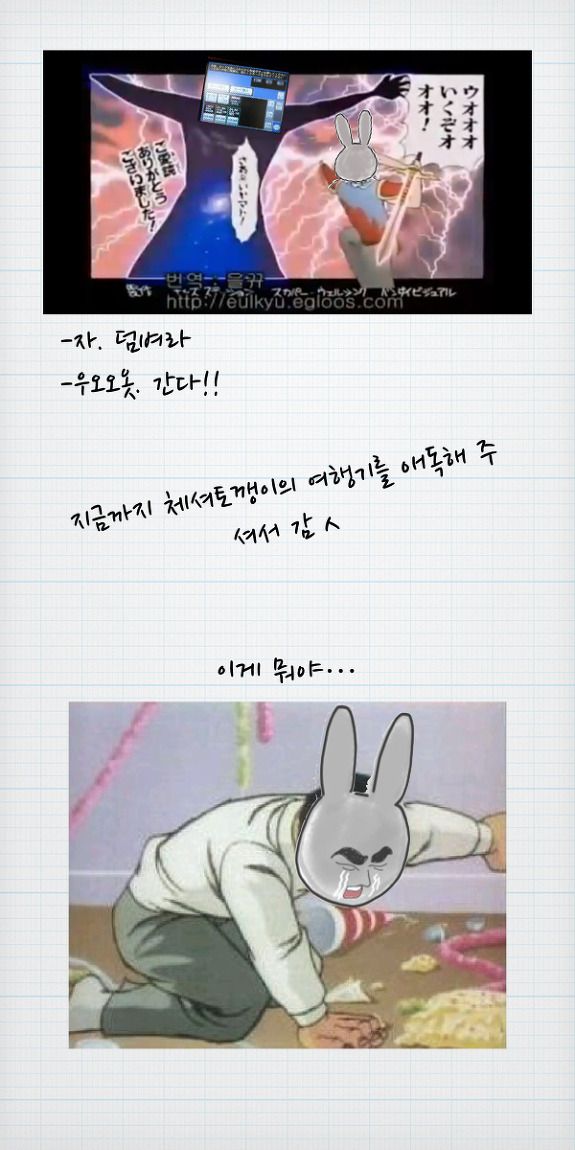 ウオオオ
いくぞオ
オオ！
さあ来いヤマト！
ご愛読
ありがとう
ございました！
번역 : 을뀨
http://eulkyu.egloos.com
-자. 덤벼라
-우오오옷. 간다!!
지금까지 체셔토깽이의 여행기를 애독해 주
셔서 감 ㅅ
이게 뭐야...